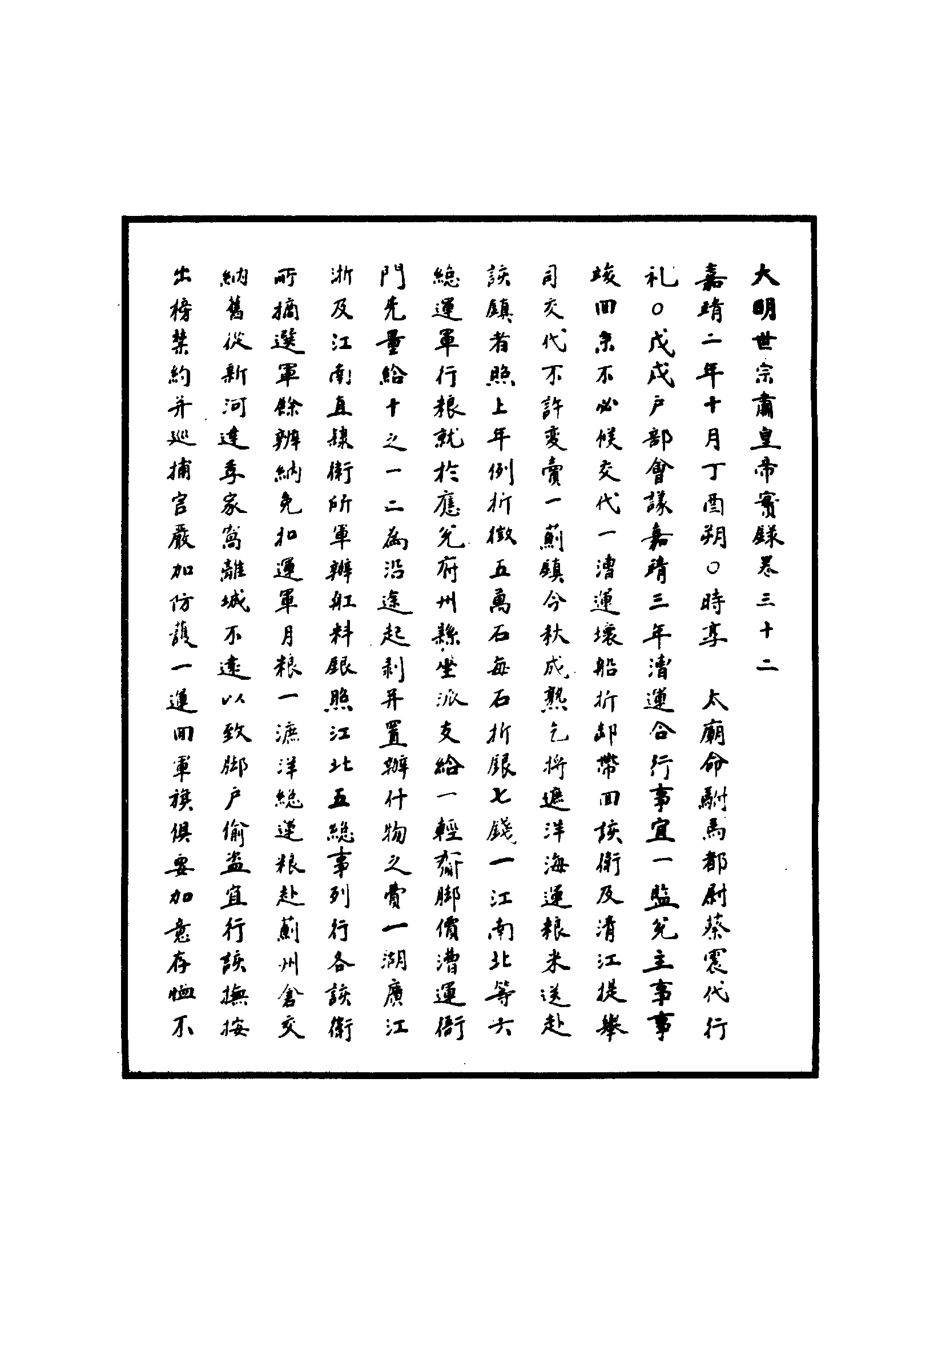 大明世宗肅皇帝實錄卷三十二
嘉靖二年十月丁酉朔○時享　太廟命駙馬都尉蔡震代行
礼○戊戌户部會議嘉靖三年漕運合行事宜一監兌主事事
竣回京不必候交代一漕運壞船折卸帶回該衛及清江提舉
司交代不許变賣一薊鎮今秋成熟乞將遮洋海運粮米送赴
該鎮者照上年例折徵五萬石每石折銀七錢一江南北等六
總運軍行粮就於應兌府州縣坐派支給一輕齎脚價漕運衙
門先量給十之一二為沿途起剥并置辦什物之費一湖廣江
浙及江南直隸衛所軍辦舡料銀照江北五總事列行各該衛
所摘選軍餘辦納免扣運軍月粮一遮洋總運粮赴薊州倉交
納舊從新河達李家窩離城不遠以致脚户偷盗宜行該撫按
出榜禁約并巡捕官嚴加防護一運回軍旗俱要加意存恤不